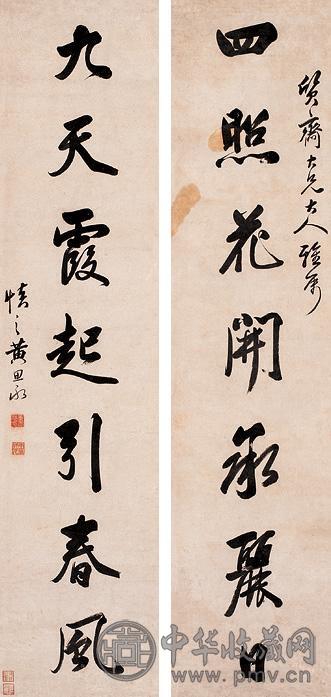 質齋大兄大人雅属
四照花開承麗日
九天霞起引春風
慎之黃思永
中华收藏网
www.pmv.cn